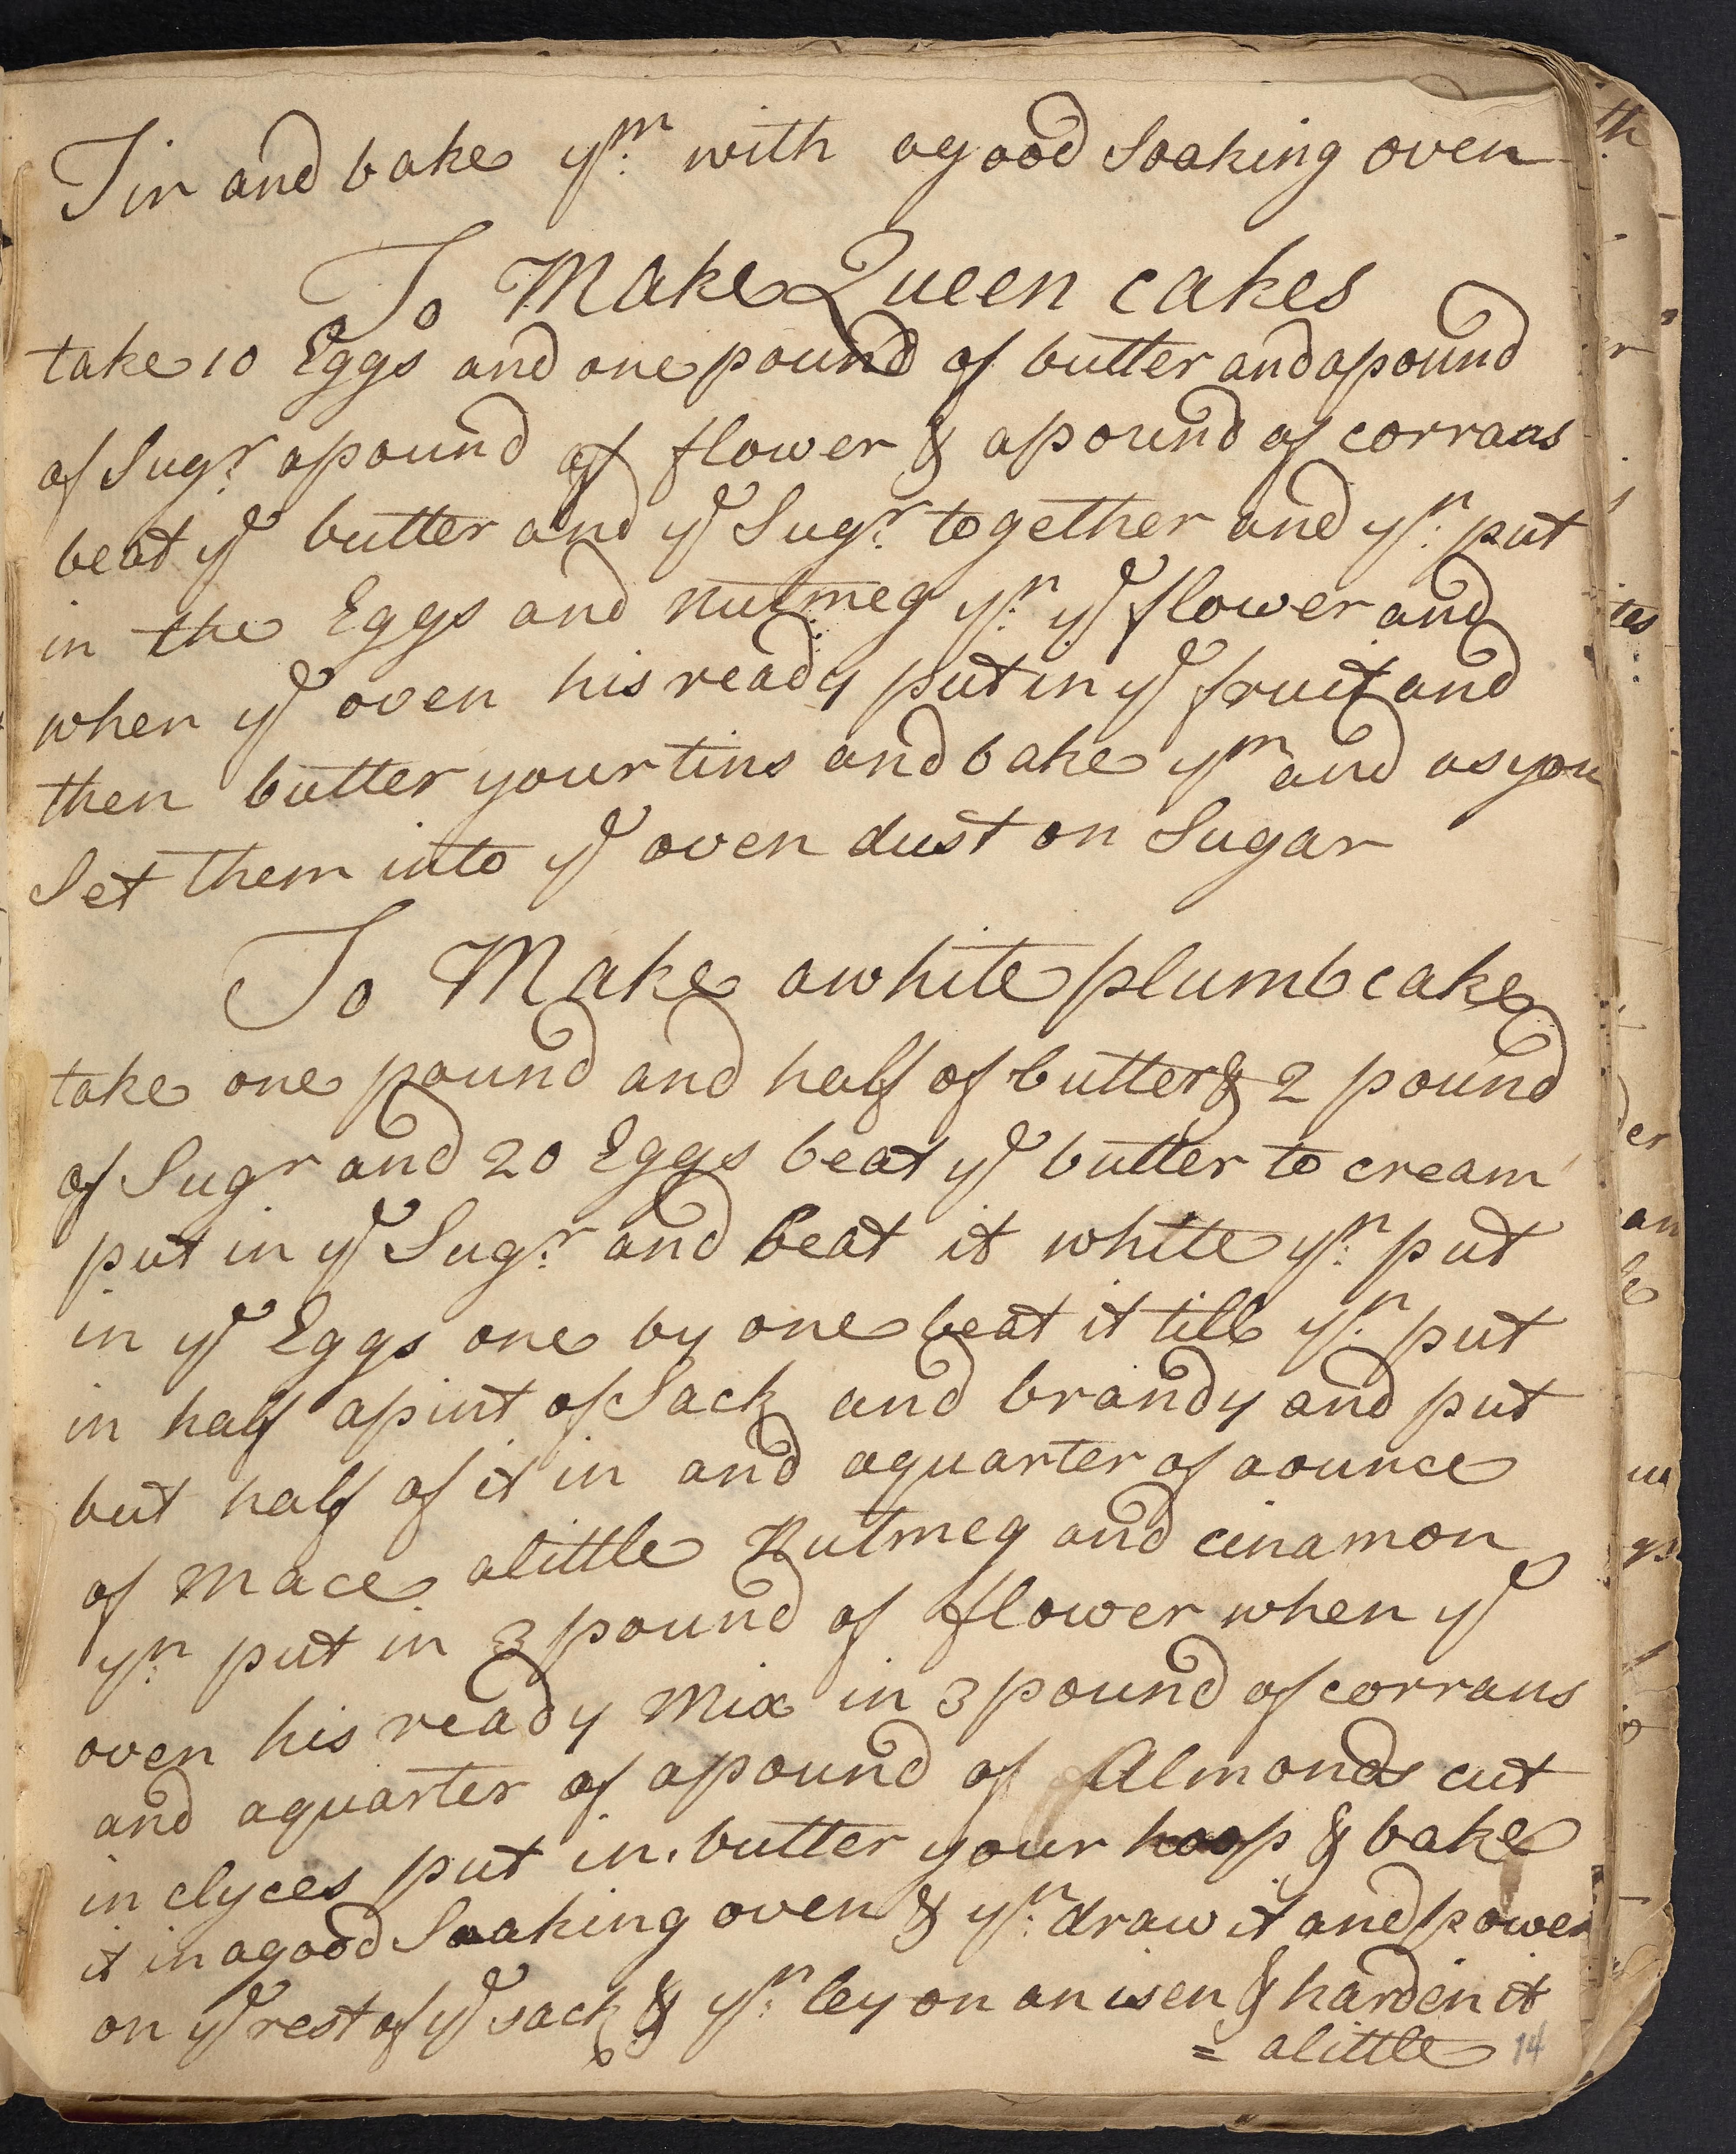 Tin and bake ym: with a good Soaking oven
To Make Queen cakes
take 10 Eggs and one pound of butter and a pound
of Sugr: a pound of flower & a pound of corrans
beat ye butter and ye Sugr: together and yn: put
in the Eggs and nutmeg yn: ye flower and
when ye oven his ready put in ye fruit and
then butter your tins and bake ym and as you
Set them into ye oven dust on Sugar
To Make a white plumb cake
take one pound and half of butter & 2 pound
of Sugr and 20 Eggs beat ye butter to cream
put in ye Sugr: and beat it white yn: put
in ye Eggs one by one beat it till yn: put
in half a pint of Sack and brandy and put
but half of it in and a quarter of a ounce
of Mace a little Nutmeg and cinamon
yn: put in 3 pound of flower when ye
oven his ready Mix in 3 pound of corrans
and a quarter of a pound of Almonds cut
in clyces put in. butter your hoop & bake
it in a good Soaking oven & yn: draw it and power
on ye rest of ye sack & yn: ley on an isen & harden it
= a little 14